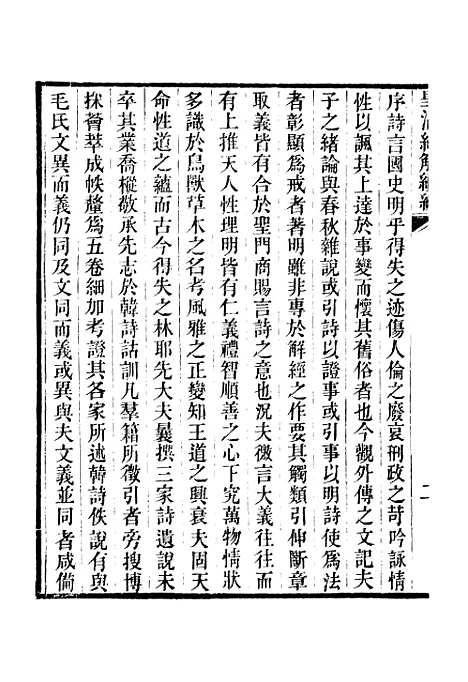 皇清經解續編
二
序詩言國史明乎得失之迹傷人倫之廢哀刑政之苛吟詠情
性以諷其上達於事變而懷其舊俗者也今觀外傳之文記夫
子之緒論與春秋雜說或引詩以證事或引事以明詩使為法
者彰顯為戒者著明雖非專於解經之作要其觸類引伸斷章
取義皆有合於聖門商賜言詩之意也況夫微言大義往往而
有上推天人性理明皆有仁義禮智順善之心下究萬物情狀
多識於鳥獸草木之名考風雅之正變知王道之興衰夫固天
命性道之蘊而古今得失之林耶先大夫曩撰三家詩遺說未
卒其業喬樅敬承先志於韓詩詁訓凡羣籍所徵引者旁搜博
採薈萃成帙釐為五卷細加考證其各家所述韓詩佚說有與
毛氏文異而義仍同及文同而義或異與夫文義並同者咸僃